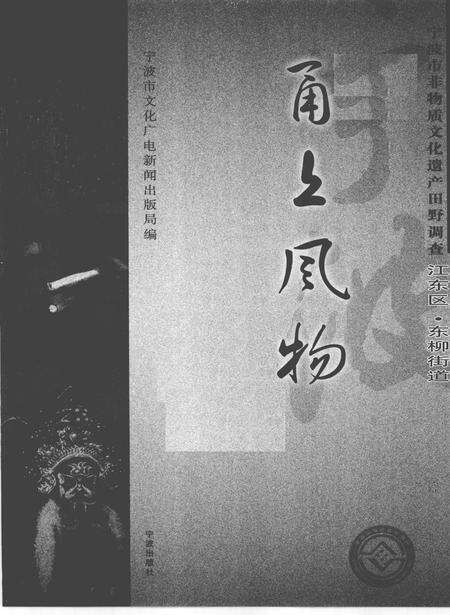 宁波市非物质文化遗产田野调查
江东区·东柳街道
甬上风物
宁波市文化广电新闻出版局编
宁波出版社